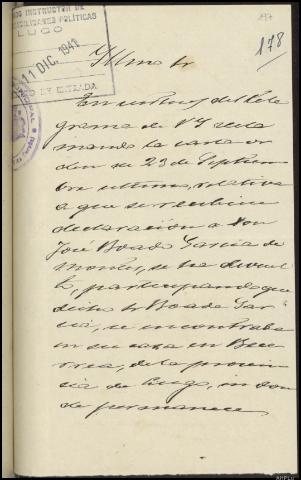 INSTRUCTOR DE
RESPONSABILIDADES POLÍTICAS
LUGO
11 DIC. 1941
ENTRADA
178
Ilmo Sr
En virtud del tele
grama de V I recla
mando la carta or
den de 23 de Septiem
bre ultimo, relativa
a que se recibiera
declaración a Don
José Boado Garcia de
Montes, se ha devuel
to, participando que
dicho Sr Boado Gar
cia, se encontraba
en su casa en Bece
rrea, de la provin
cia de Lugo, en don
de permanece